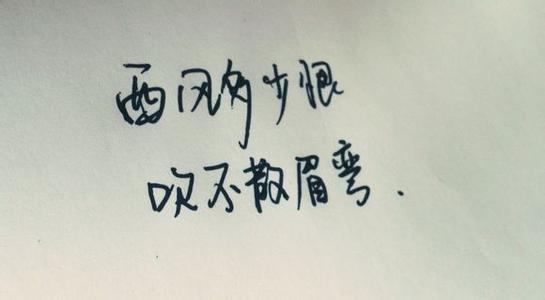 西风多少恨
吹不散眉弯.